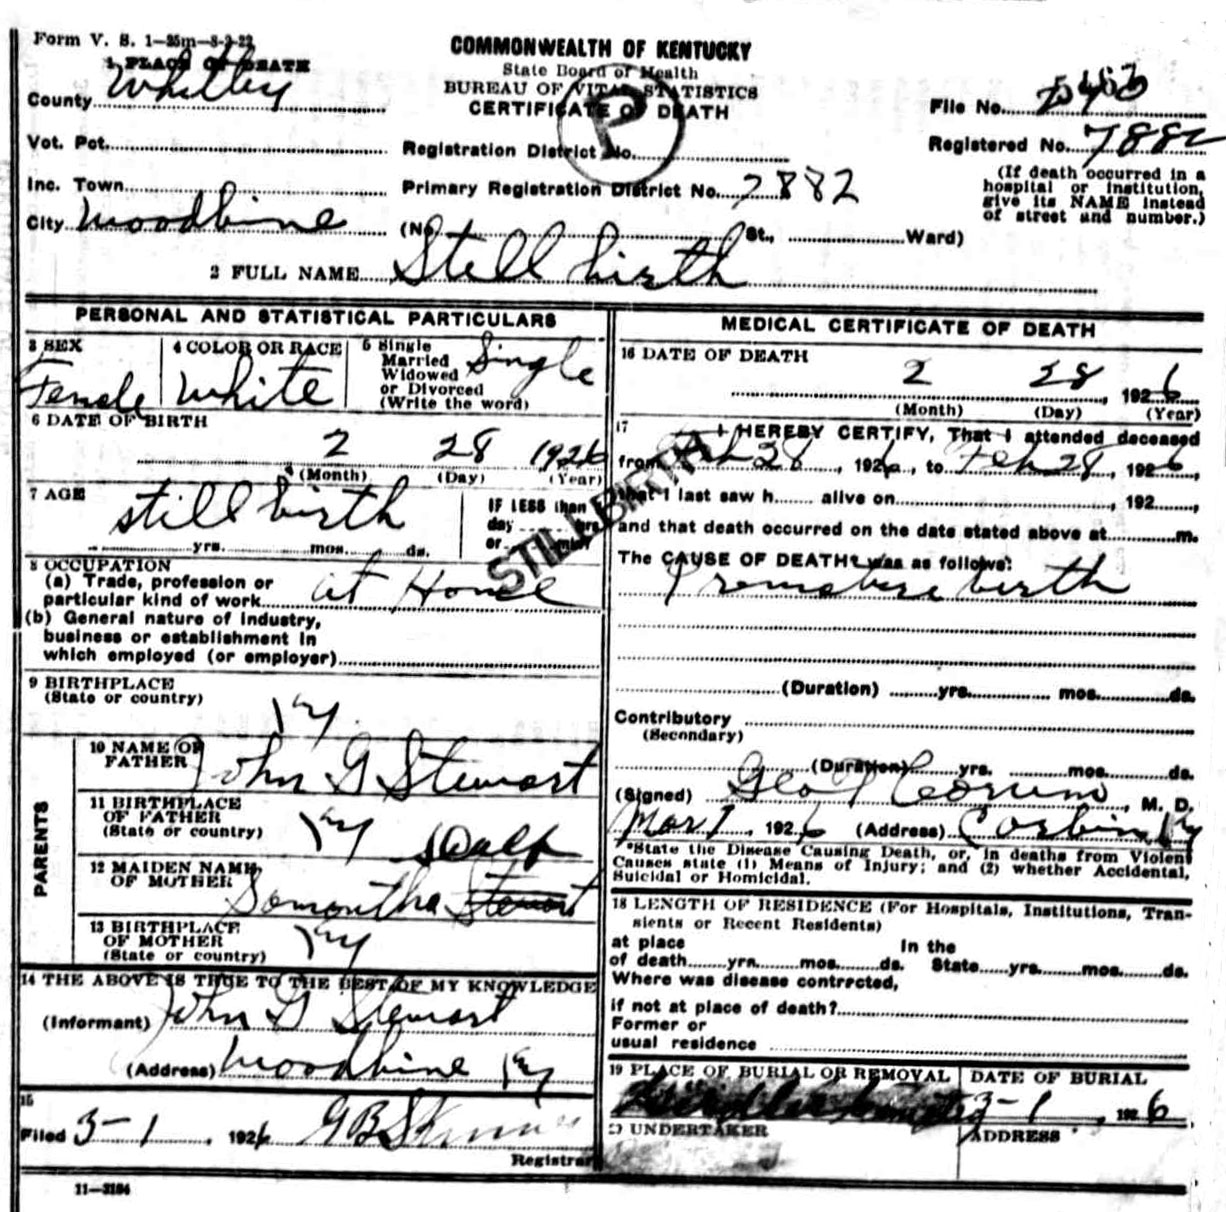 Form V. S. 1—25m—8-3-22
COMMONWEALTH OF KENTUCKY
State Board of Health
BUREAU OF VITAL STATISTICS
CERTIFICATE OF DEATH
P
1 PLACE OF DEATH
County Whitley
File No.
Vot. Pct.
Registration District No.
Registered No. 7882
Inc. Town
Primary Registration District No. 7882
(If death occurred in a hospital or institution, give its NAME instead of street and number.)
City Woodbine (No. St., Ward)
2 FULL NAME Still birth
PERSONAL AND STATISTICAL PARTICULARS
3 SEX
Female
4 COLOR OR RACE
White
5 Single
Married
Widowed
or Divorced
(Write the word)
Single
6 DATE OF BIRTH
2 28 1926
(Month) (Day) (Year)
7 AGE
still birth
yrs. mos. ds.
IF LESS than
day hrs
or min
STILLBIRTH
8 OCCUPATION
(a) Trade, profession or
particular kind of work at Home
(b) General nature of industry,
business or establishment in
which employed (or employer)
9 BIRTHPLACE
(State or country)
Ky.
PARENTS
10 NAME OF
FATHER John G Stewart
11 BIRTHPLACE
OF FATHER
(State or country) Ky
12 MAIDEN NAME
OF MOTHER Somontha Stewart
13 BIRTHPLACE
OF MOTHER
(State or country) Ky
14 THE ABOVE IS TRUE TO THE BEST OF MY KNOWLEDGE
(Informant) John G Stewart
(Address) Woodbine Ky
15
Filed 3-1, 1926
Registrar
11—3184
MEDICAL CERTIFICATE OF DEATH
16 DATE OF DEATH
2 28, 1926
(Month) (Day) (Year)
17 I HEREBY CERTIFY, That I attended deceased
from Feb 28, 1926, to Feb 28, 1926
that I last saw h alive on , 192
and that death occurred on the date stated above at m.
The CAUSE OF DEATH* was as follows:
Premature birth
(Duration) yrs. mos. ds.
Contributory
(Secondary)
(Duration) yrs. mos. ds.
(Signed) Geo P Corum, M. D.
Mar 1, 1926 (Address) Corbin Ky
*State the Disease Causing Death, or, in deaths from Violent
Causes state (1) Means of Injury; and (2) whether Accidental,
Suicidal or Homicidal.
18 LENGTH OF RESIDENCE (For Hospitals, Institutions, Tran-
sients or Recent Residents)
at place In the
of death yrs. mos. ds. State yrs. mos. ds.
Where was disease contrected,
if not at place of death?
Former or
usual residence
19 PLACE OF BURIAL OR REMOVAL
DATE OF BURIAL
3-1, 1926
UNDERTAKER
ADDRESS